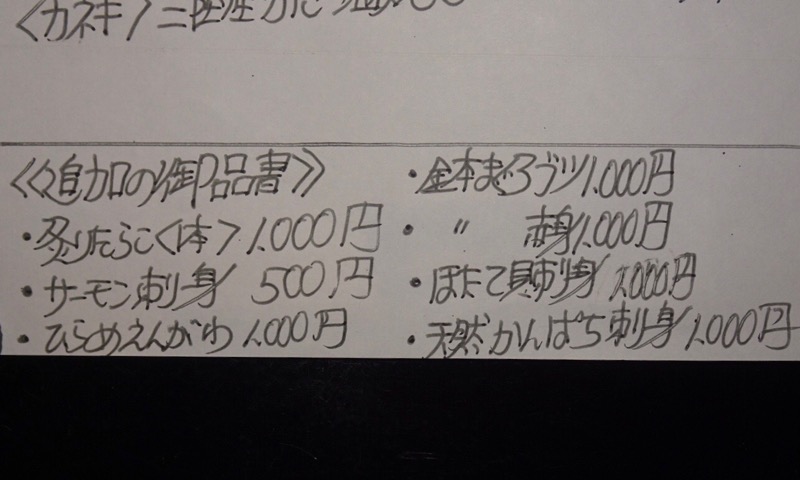 《追加の御品書》
・炙りたらこ〈1本〉1.000円
・サーモン刺身 500円
・ひらめえんがわ 1.000円
・本まぐろブツ1.000円
・〃 赤身1.000円
・ほたて貝刺身 1.000円
・天然かんぱち刺身 1.000円